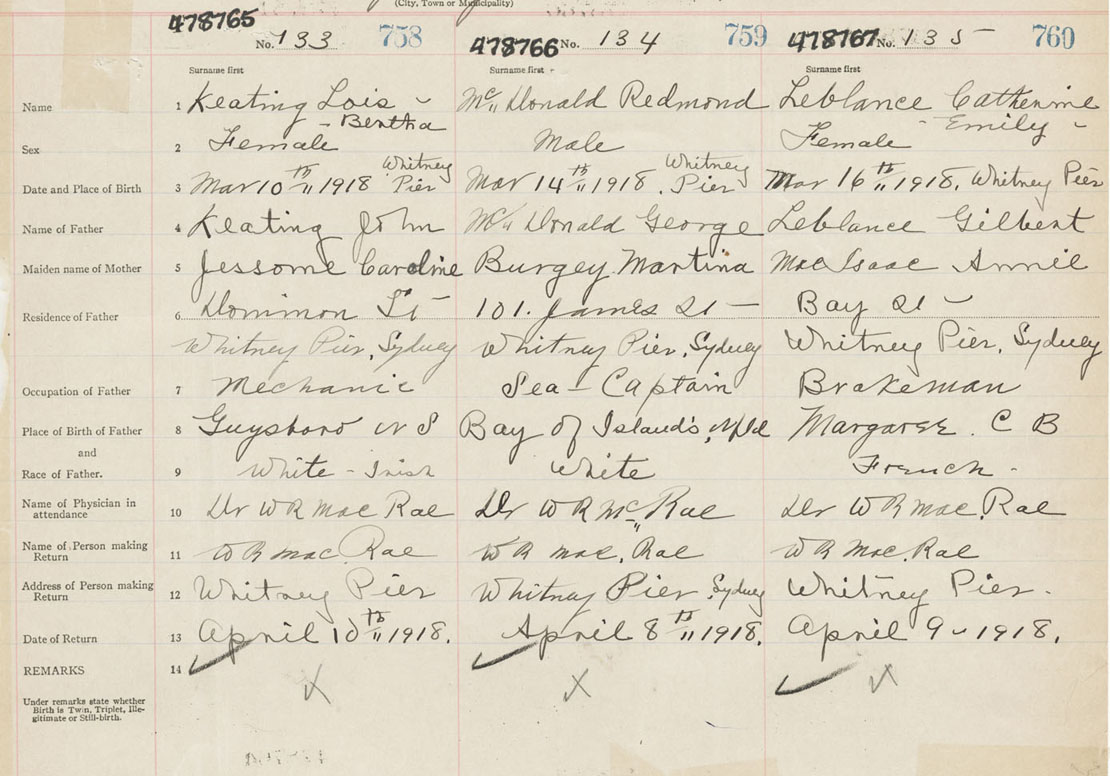 (City, Town or Municipality)
478765 No. 133 758 478766 No. 134 759 478767 No. 135 760
Surname first Surname first Surname first
Name 1 Keating Lois - Bertha McDonald Redmond Leblance Catherine - Emily -
Sex 2 Female Male Female
Date and Place of Birth 3 Mar 10th 1918 Whitney Pier Mar 14th 1918. Whitney Pier Mar 16th 1918, Whitney Pier
Name of Father 4 Keating John McDonald George Leblance Gilbert
Maiden name of Mother 5 Jessome Caroline Burgey Martina MacIsaac Annie
Residence of Father 6 Dominion St - 101. James St - Bay St -
Whitney Pier, Sydney Whitney Pier, Sydney Whitney Pier, Sydney
Occupation of Father 7 Mechanic Sea - Captain Brakeman
Place of Birth of Father 8 Guysboro N S Bay of Island's, Nfld Margaree. C B
and
Race of Father. 9 White - Irish White French -
Name of Physician in attendance 10 Dr W R Mac Rae Dr W R Mc Rae Dr W R Mac Rae
Name of Person making Return 11 W R Mac Rae W R Mac. Rae W R Mac. Rae
Address of Person making Return 12 Whitney Pier Whitney Pier. Sydney Whitney Pier.
Date of Return 13 April 10th 1918. April 8th 1918. April 9 - 1918.
REMARKS 14
Under remarks state whether
Birth is Twin, Triplet, Ille-
gitimate or Still-birth.